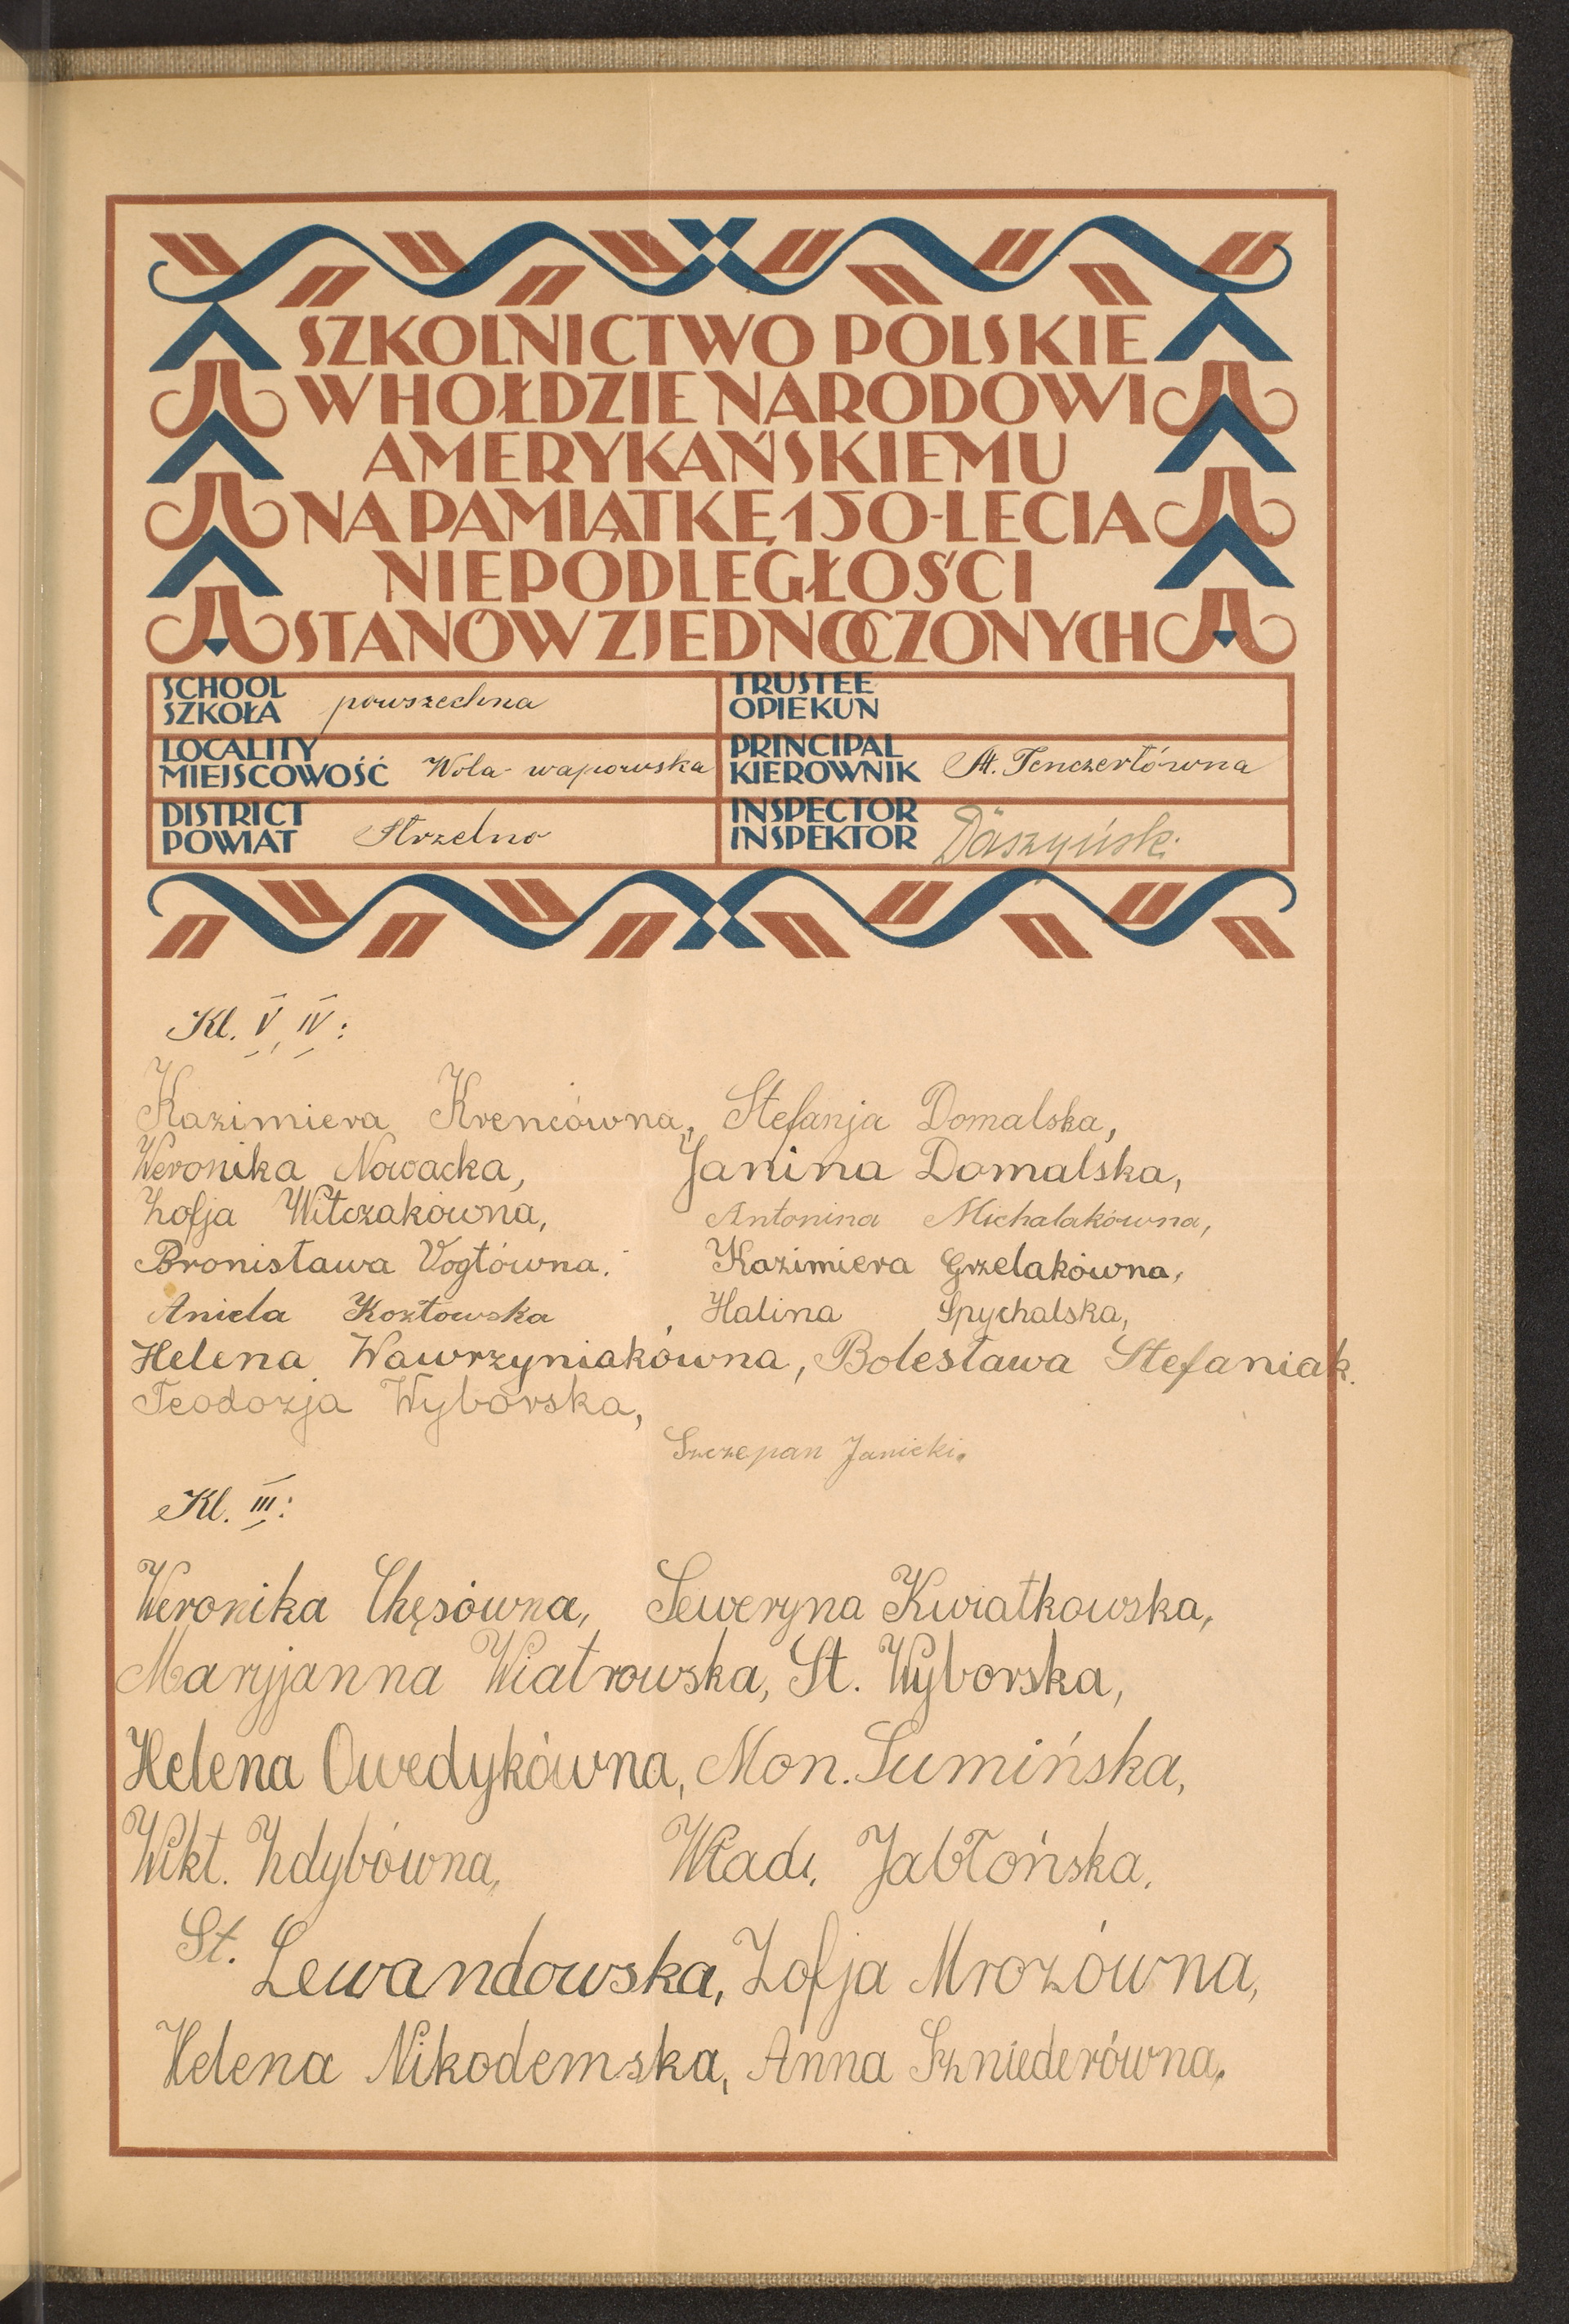 SZKOLNICTWO POLSKIE
W HOŁDZIE NARODOWI
AMERYKAŃSKIEMU
NA PAMIĄTKĘ 150-LECIA
NIEPODLEGŁOŚCI
STANÓW ZJEDNOCZONYCH
SCHOOL
SZKOŁA powszechna
TRUSTEE
OPIEKUN
LOCALITY
MIEJSCOWOŚĆ Wola wapowska
PRINCIPAL
KIEROWNIK St. Tenczertówna
DISTRICT
POWIAT Strzelno
INSPECTOR
INSPEKTOR Daszyński
Kl. V, IV:
Kazimiera Krencówna, Stefanja Domalska,
Weronika Nowacka, Janina Domalska,
Zofja Witczakówna, Antonina Michalakówna,
Bronisława Vogtówna. Kazimiera Grzelakówna,
Aniela Kozłowska, Halina Spychalska,
Helena Wawrzyniakówna, Bolesława Stefaniak.
Teodozja Wyborska,
Szczepan Janicki.
Kl. III:
Weronika Chęsówna, Seweryna Kwiatkowska,
Maryjanna Wiatrowska, St. Wyborska,
Helena Owedykówna, Mon. Sumińska,
Wikt. Zdybówna, Wład. Jabłońska.
St. Lewandowska, Zofja Mrozówna,
Helena Nikodemska, Anna Szniederówna.